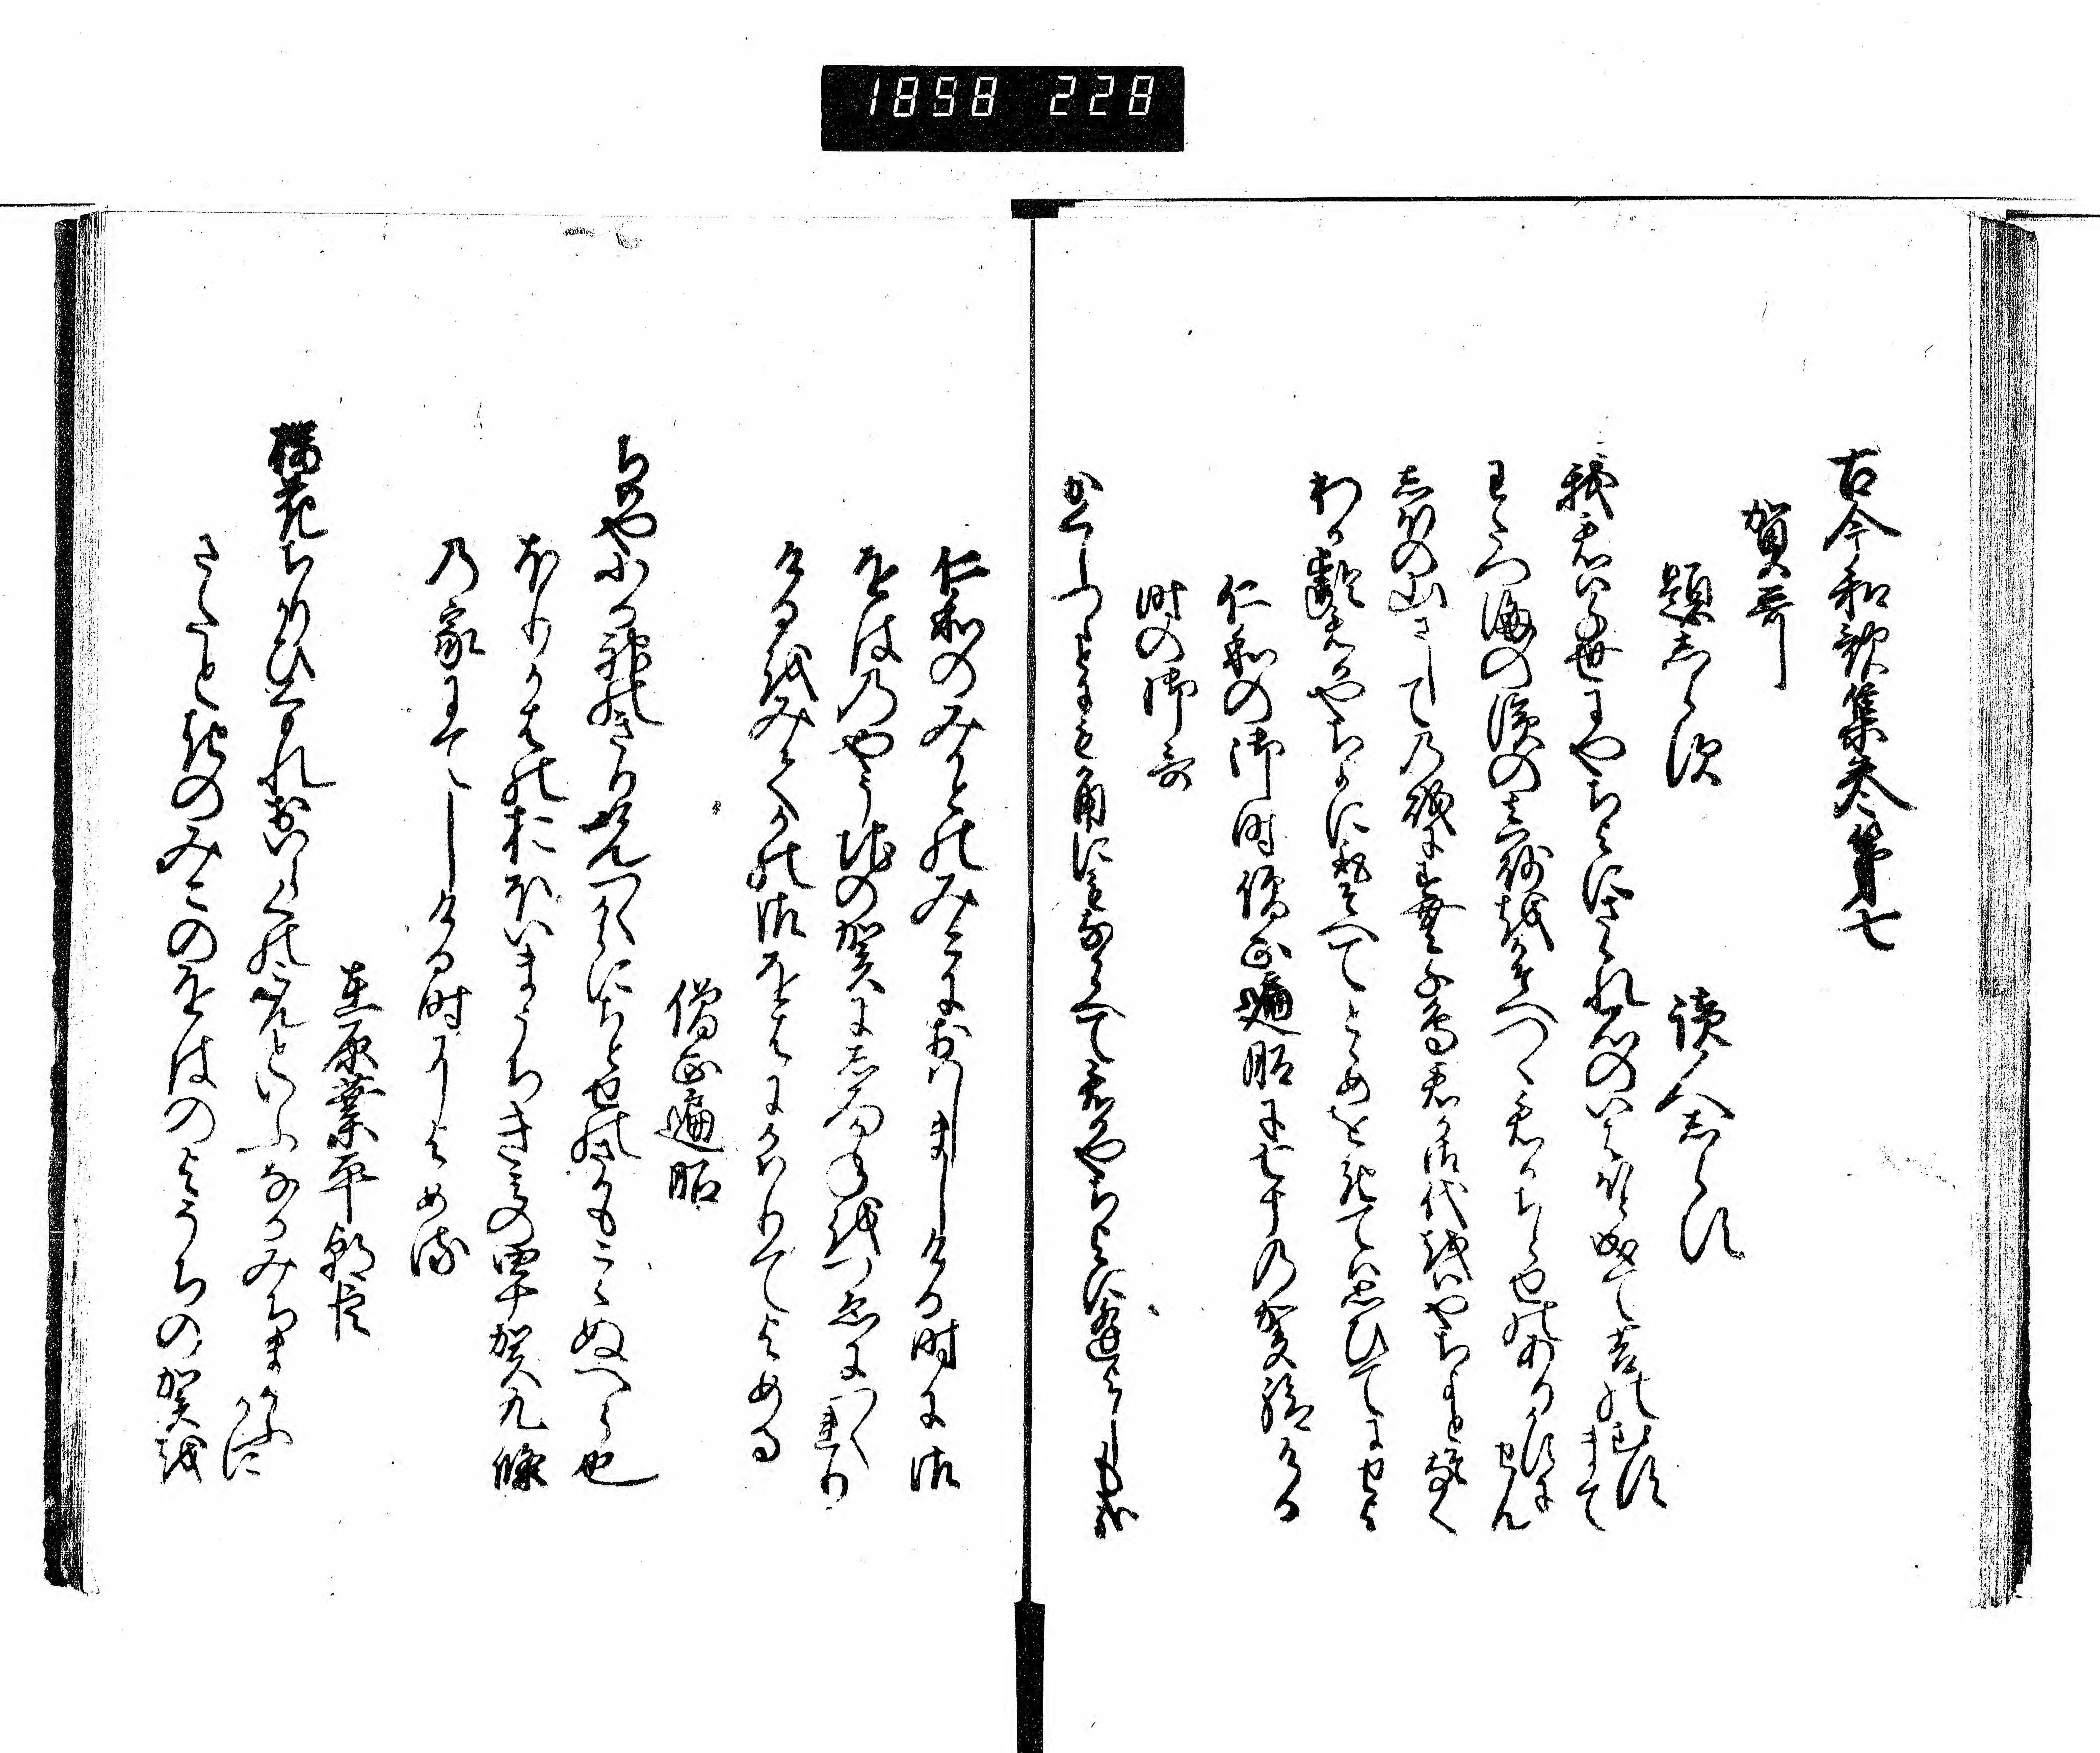 1898 228
古今和歌集巻第七
賀哥
題しらす
読人しらす
我君は千世にやちよにさゝれ石のいはほと成て苔のむすまて
わたつ海の濱の真砂をかそへつゝ君かちとせのありかすにせん
しほの山さしての磯にすむ千鳥君か御代をはやちよとそ鳴く
わか齢君かやちよにとりそへてとゝめをきては思ひてにせよ
仁和の御時僧正遍昭に七十の賀給ける
時の御哥
かくしつゝとにもかくにもなからへて君かやちよに逢よしも哉
仁和のみかとのみこにおはしましける時に御
をはのやそちの賀にしろかねをつゑにつくれり
けるをみてかの御をはにかはりてよめる
僧正遍昭
ちはやふる神のきりけんつくからにちとせの坂もこえぬへら也
ほりかはのおほいまうちきみの四十賀九條
の家にてしける時によめる
在原業平朝臣
櫻花ちりかひくもれおいらくのこんといふなるみちまかふかに
さたときのみこのをはのよそちの賀を